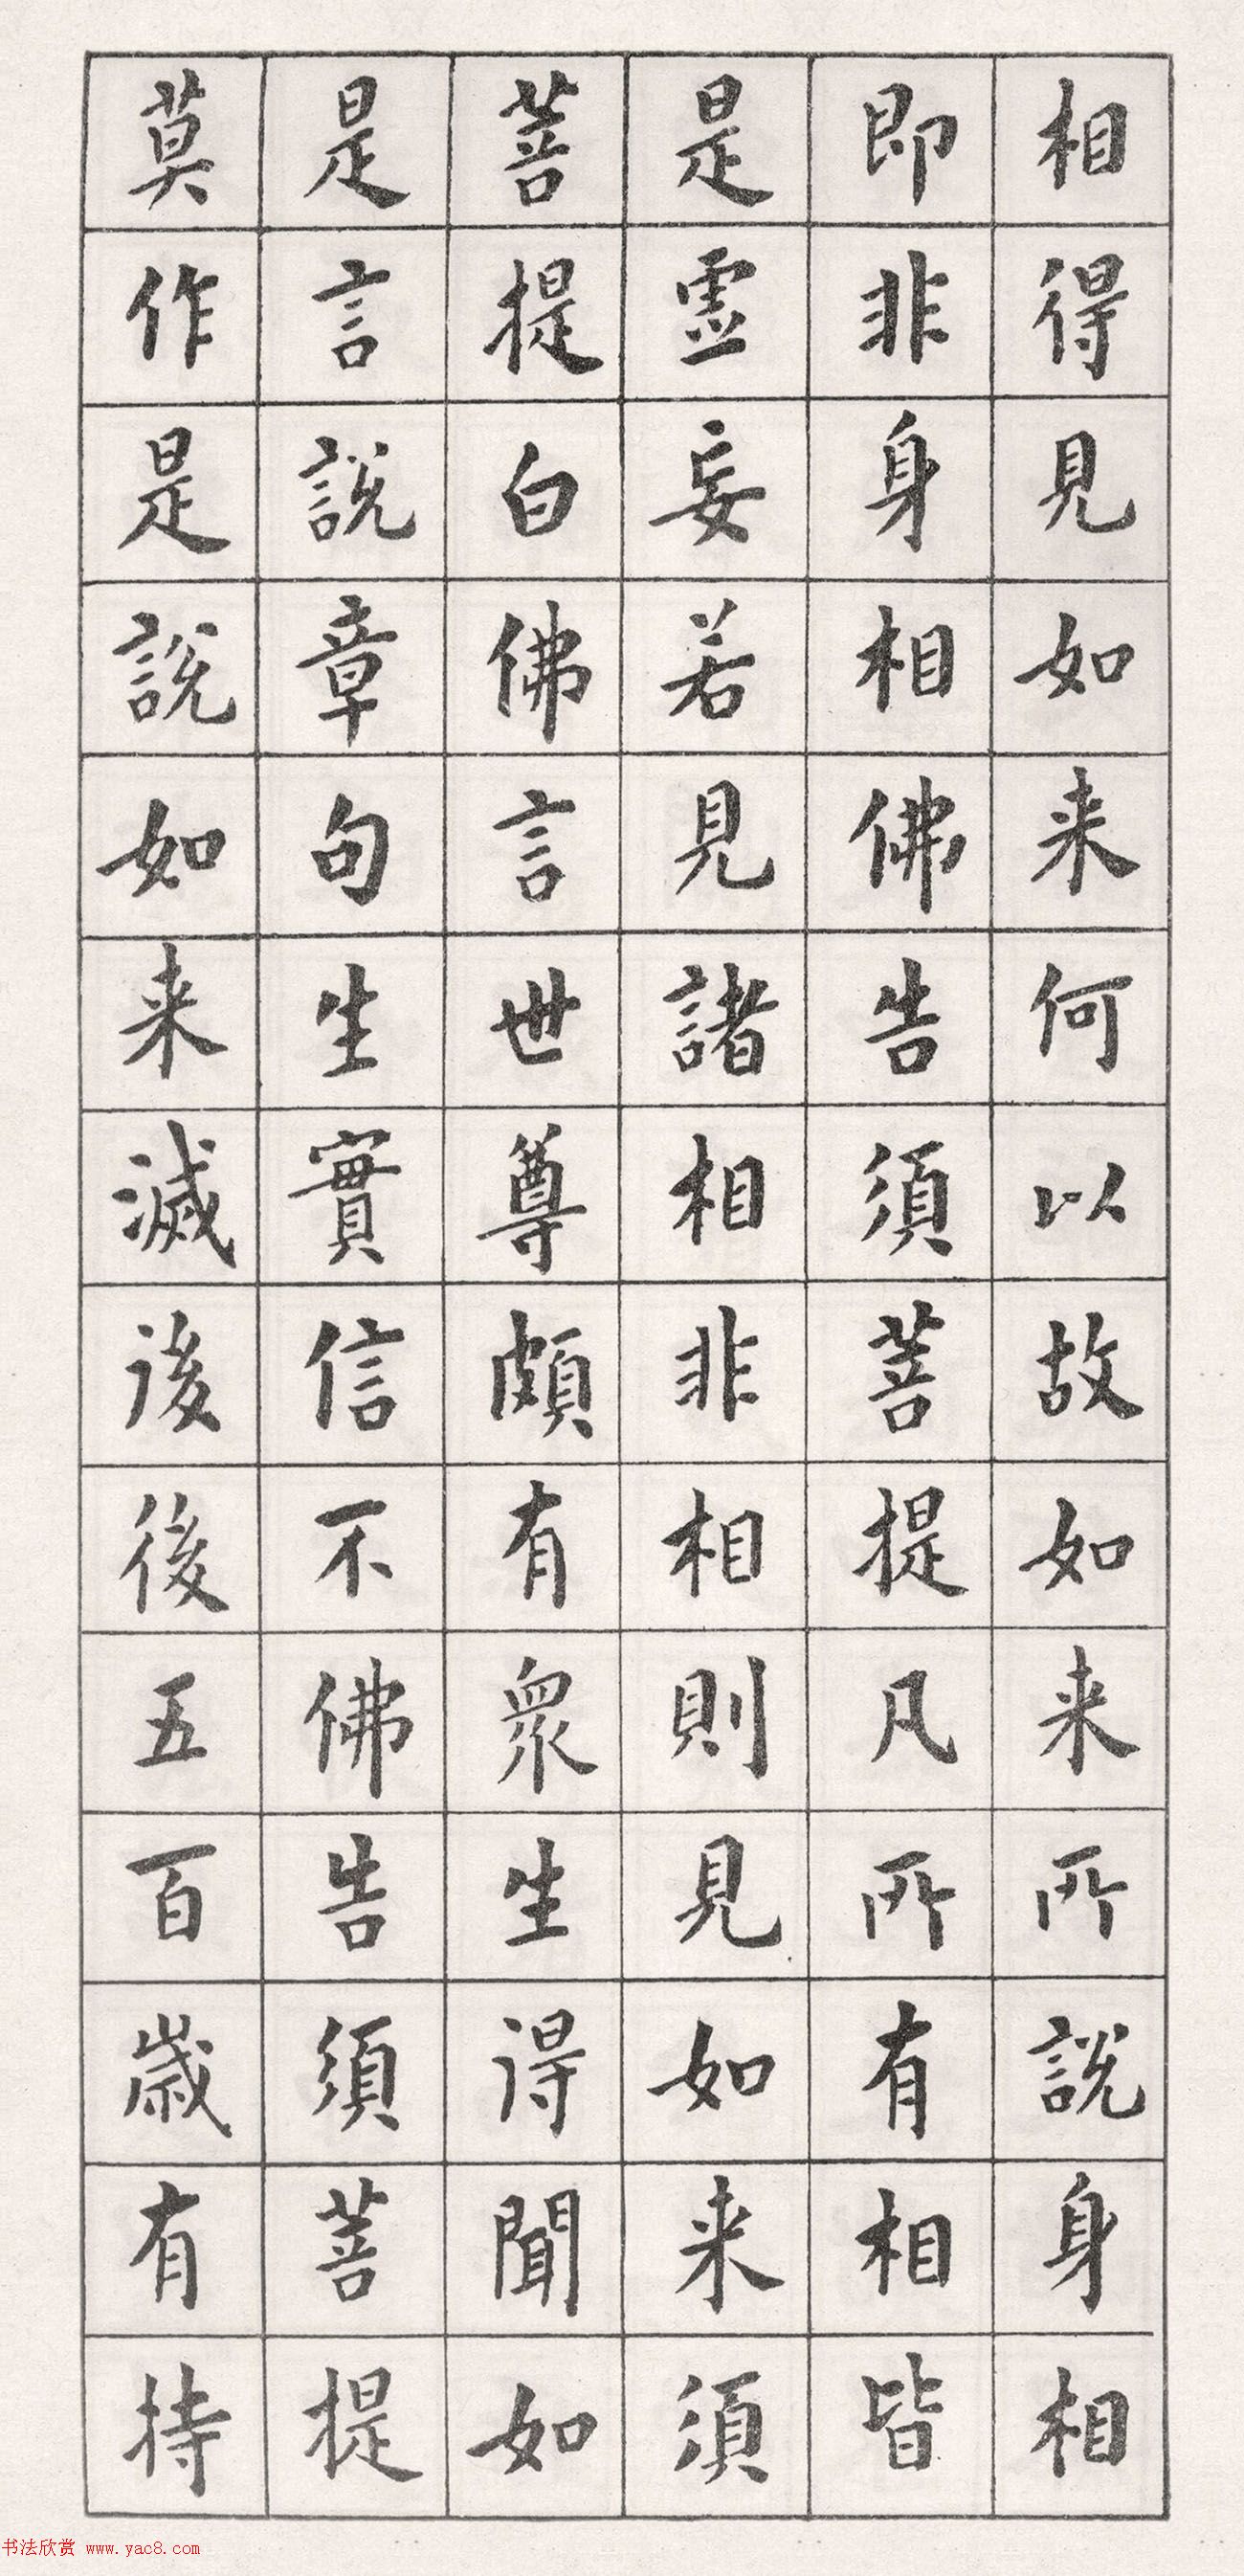 相得見如来何以故如来所說身相
即非身相佛告須菩提凡所有相皆
是虛妄若見諸相非相則見如来須
菩提白佛言世尊頗有眾生得聞如
是言說章句生實信不佛告須菩提
莫作是說如来滅後後五百歲有持
书法欣赏 www.yac8.com